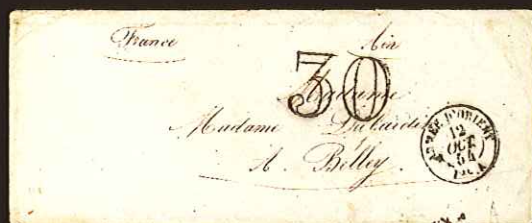 France Ain
30
Madame
Madame
A Belley
ARMÉE D'ORIENT
12
OCT
54